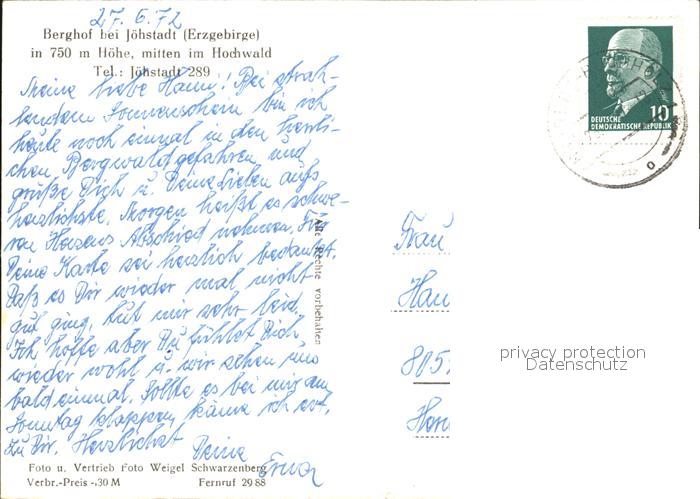 27.6.72
Berghof bei Jöhstadt (Erzgebirge)
in 750 m Höhe, mitten im Hochwald
Tel.: Jöhstadt 289
Meine liebe Hanni! Bei strah-
lendem Sonnenschein bin ich
heute noch einmal in den herrli-
chen Bergwald gefahren und
grüße Dich u. Deine Lieben aufs
herzlichste. Morgen heißt es schwe-
ren Herzens Abschied nehmen. Für
Deine Karte sei herzlich bedankt.
Daß es Dir wieder mal nicht
gut ging, tut mir sehr leid.
Ich hoffe aber Du fühlst Dich
wieder wohl u. wir sehen uns
bald einmal. Sollte es bei mir am
Sonntag klappen, käme ich evt.
zu Dir. Herzlichst
Deine
Erna
Foto u. Vertrieb Foto Weigel Schwarzenberg
Verbr.-Preis -,30 M Fernruf 29 88
Alle Rechte vorbehalten
10
DEUTSCHE
DEMOKRATISCHE REPUBLIK
Frau
Han
805
privacy protection
Datenschutz